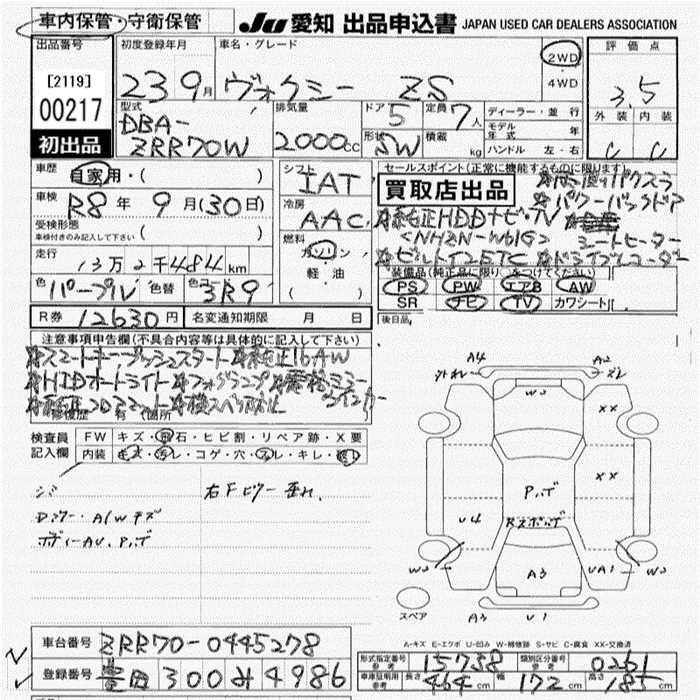 車内保管・守衛保管
JU 愛知 出品申込書 JAPAN USED CAR DEALERS ASSOCIATION
出品番号
[2119]
00217
初出品
初度登録年月
23 9月
車名・グレード
ヴォクシー ZS
2WD
・
4WD
評価点
3.5
外装 内装
C C
型式
DBA-
ZRR70W
排気量
2000cc
ドア 5
定員 7人
形状 SW
積載 kg
ディーラー・並行
モデル年式 年
ハンドル 左・右
車歴
自家用・( )
車検
R8年 9月(30日)
受検形態
車検付きのみ記入して下さい ( )
走行
13万2千484km
色 パープル 色替 色No 3R9
シフト
IAT
冷房
AAC
燃料
ガソリン
軽油
( )
セールスポイント(正常に機能するものに限ります)
買取店出品
☆パワーバックドア
☆純正HDDナビ・TV
<NHZN-W61G> シートヒーター
☆ビルトインETC ☆ドライブレコーダー
装備品(純正品に限り○をつけてください)
PS PW エアB AW
SR ナビ TV カワシート
R券 12630円
名変通知期限 月 日
後日品
注意事項申告欄(不具合内容等は具体的に記入して下さい)
☆スマートキー・プッシュスタート ☆純正16AW
☆HIDオートライト ☆フォグランプ ☆電格ミラー
ウインカー
修復歴 有(箇所
検査員
記入欄
FW キズ・飛石・ヒビ割・リペア跡・X要
内装 キズ・汚レ・コゲ・穴・スレ・キレ・
右Fピラー
Dミラー・A/Wキズ
ボディーAU、Pボ
A4
A2
W3
XX
XX
Pボ
U4
A3
UA1
W3
W3
A3
U1
スペア
A-キズ E-エクボ U-凹み W-補修跡 S-サビ C-腐食 XX-交換済
車台番号 ZRR70-0445278
登録番号 豊田 300 み 4986
形式指定番号 参考 15738
類別区分番号 参考 0261
車庫証明用 参考 長さ 464cm 幅 172cm 高さ 185cm